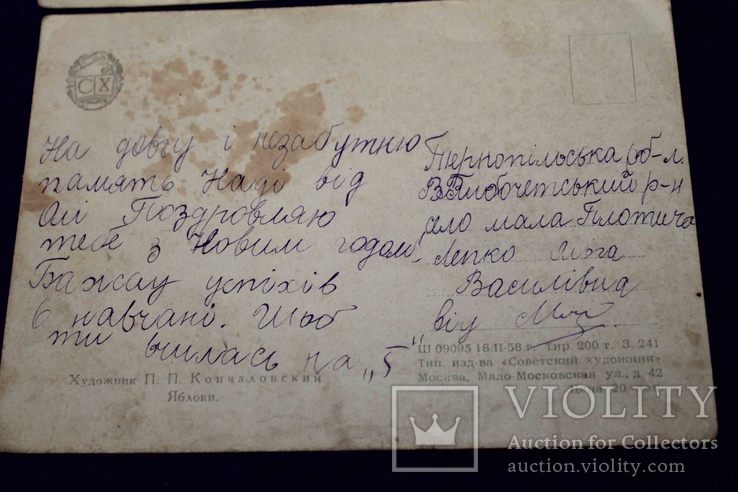 СХ
На довгу і незабутню
память Наді від
Олі Поздровляю
тебе з Новим годом,
Бажаю успіхів
в навчані. Щоб
ти вчилась на „5"
Художник П. П. Кончаловский
Яблоки.
Тернопільська обл.
р-н
село мала Плотича
Лепко
Василівна
від
Ш 09095 18-II-58 г. Тир. 200 т. З. 241
Тип. изд-ва «Советский художник»
Москва, Мало-Московская ул., д. 42
Цена 20 коп.
VIOLITY
Auction for Collectors
auction.violity.com